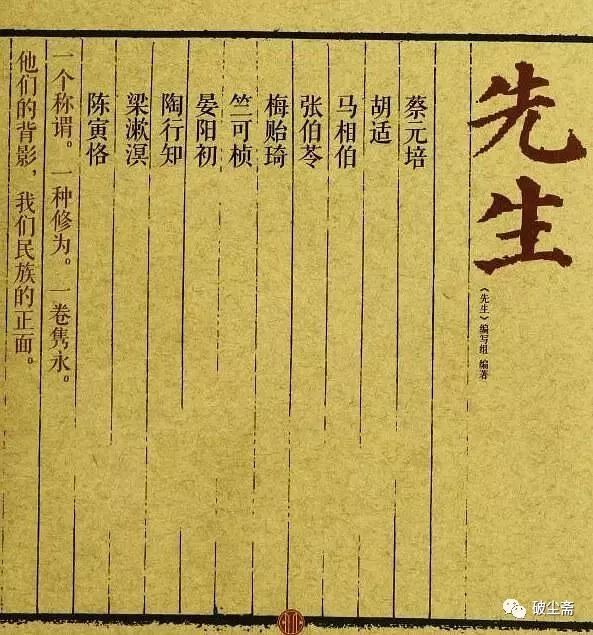 先生
《先生》编写组 编著
蔡元培
胡适
马相伯
张伯苓
梅贻琦
竺可桢
晏阳初
陶行知
梁漱溟
陈寅恪
一个称谓。一种修为。一卷隽永。
他们的背影，我们民族的正面。
破尘斋